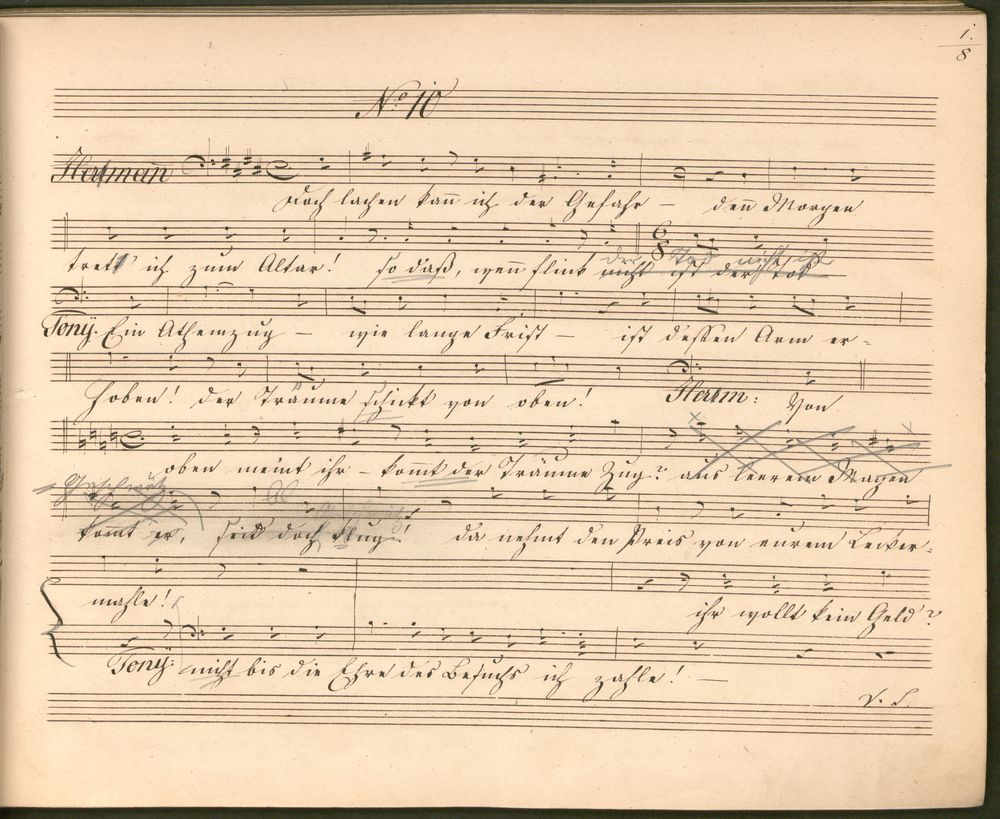 1.
8
No 10
Hertmañ
Doch lachen kañ ich der Gefahr – deñ Morgen
trett ich zum Altar! so daß, weñ flink nicht ist der Tod
der Tod nicht ist
Tonÿ. Ein Athemzug – wie lange Frist – ist dessen Arm er=
hoben! der Träume schickt von oben! Hertm: Von
oben meint ihr – komt der Träume Zug? aus leerem Magen
Geschwätz
kom̄t er, seid doch klug! da nehmt den Preis von eurem Lecker=
mahle! ihr wollt kein Geld?
Tonÿ: nicht bis die Ehre des Besuchs ich zahle! –
V. S.